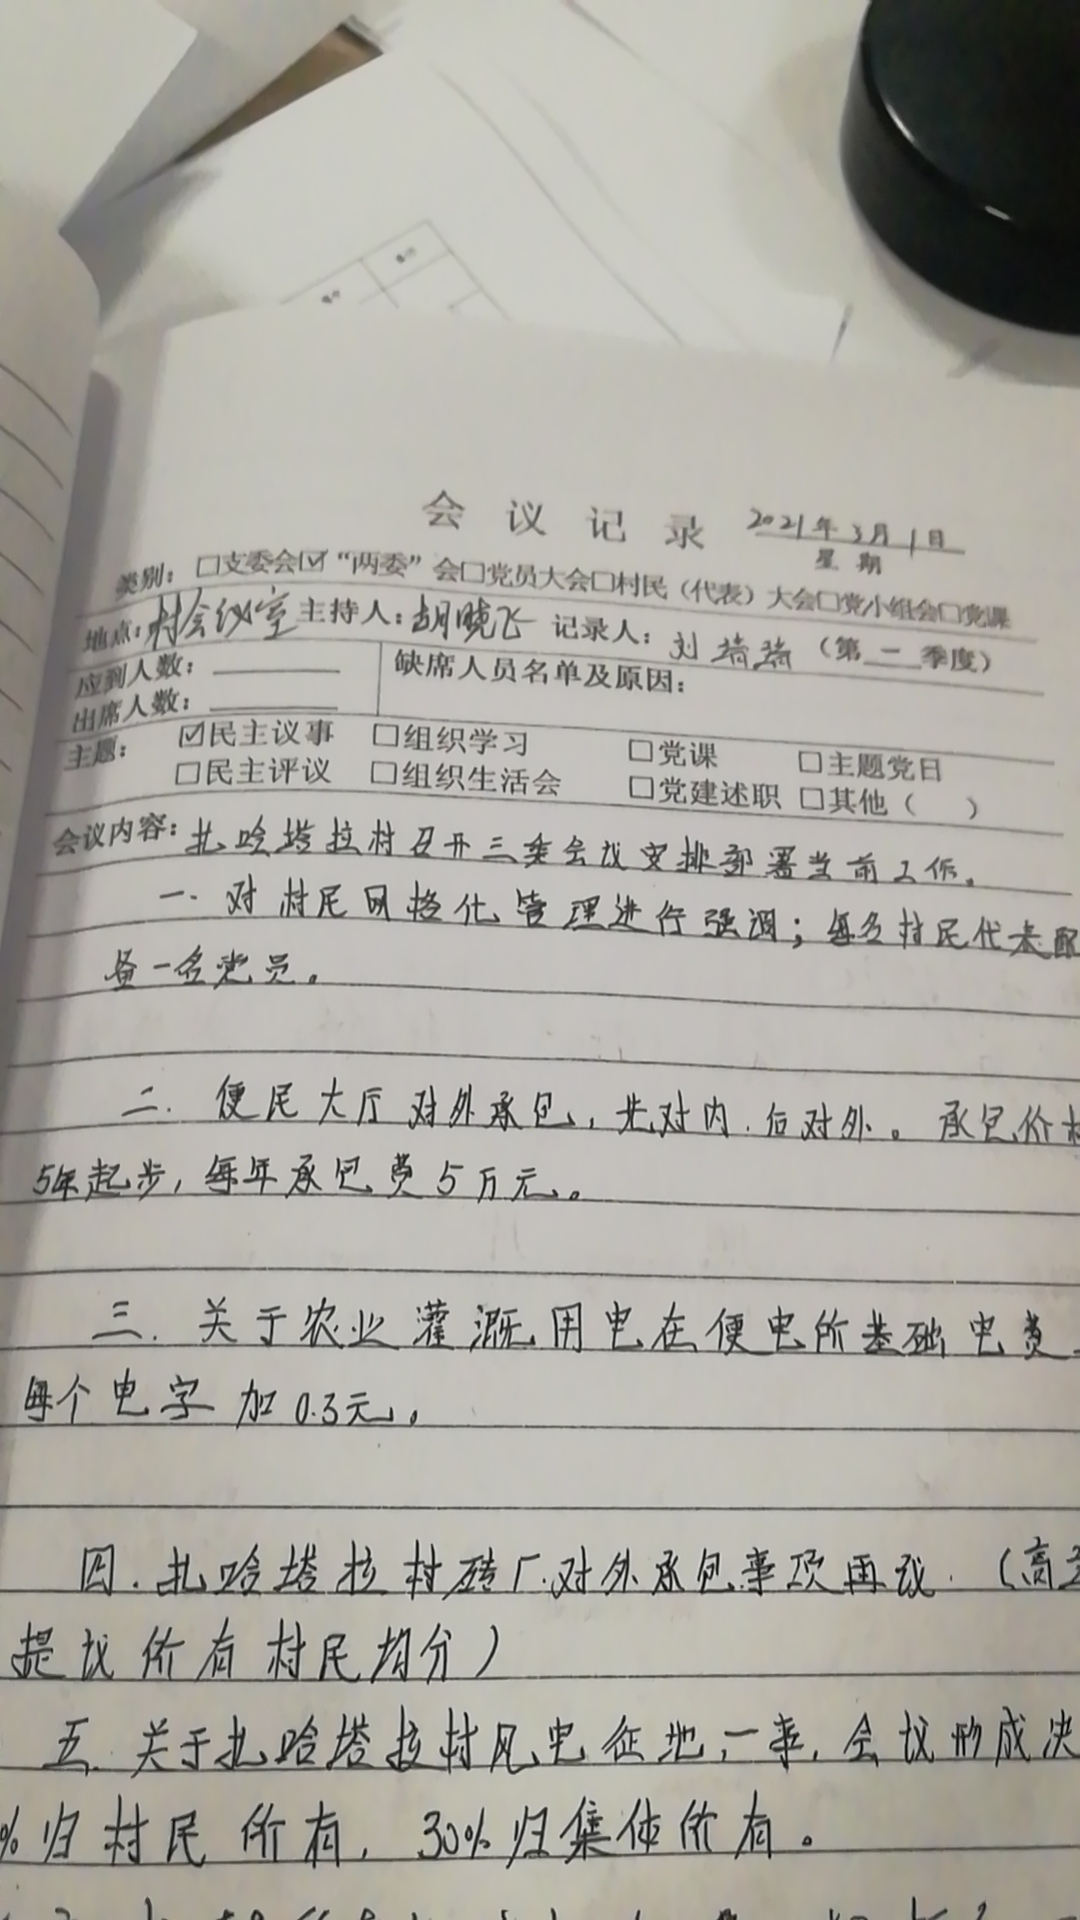 会议记录 2021年3月1日
星期
类别：□支委会☑“两委”会□党员大会□村民（代表）大会□党小组会□党课
地点：村会议室 主持人：胡晓飞 记录人：刘（第一季度）
应到人数： 缺席人员名单及原因：
出席人数：
主题： ☑民主议事 □组织学习 □党课 □主题党日
□民主评议 □组织生活会 □党建述职 □其他（ ）
会议内容：扎哈塔拉村召开三委会议安排部署当前工作。
一.对村民网格化管理进行强调；每名村民代表配
备一名党员。
二.便民大厅对外承包，先对内.后对外。承包价格
5年起步，每年承包费5万元。
三.关于农业灌溉用电在便电所基础电费
每个电字加0.3元。
四.扎哈塔拉村砖厂.对外承包事项再议.（高
提议价有村民均分）
五.关于扎哈塔拉村风电征地，一事，会议形成决
%归村民价有，30%归集体价有。